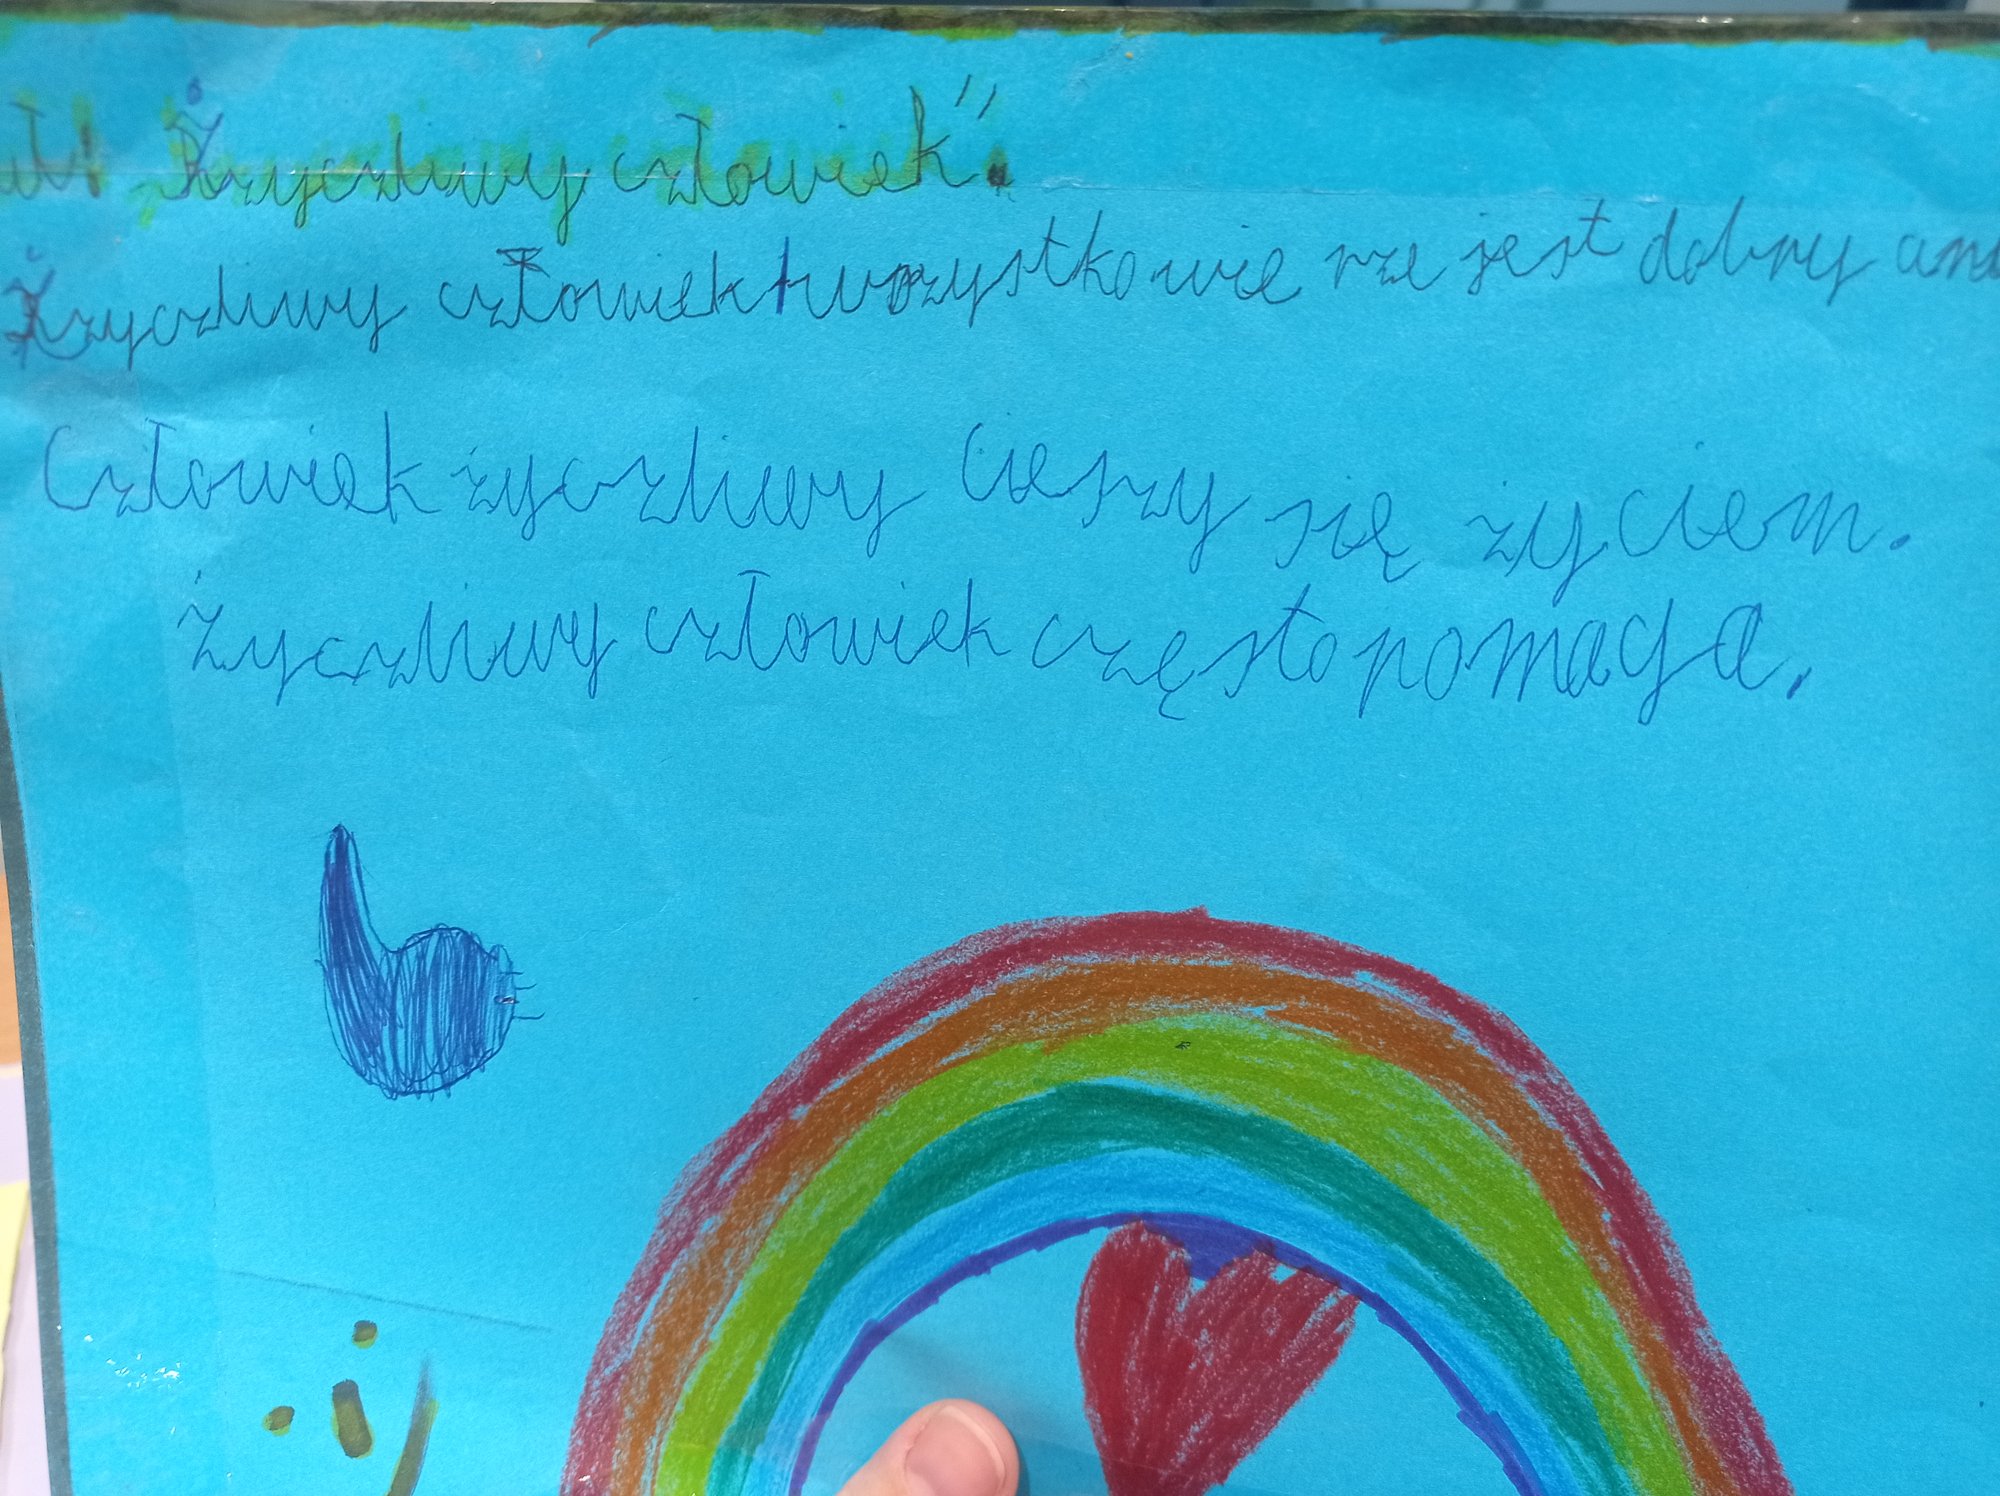 „Życzliwy człowiek".
Życzliwy człowiek wszystko wie rze jest dobry
Człowiek życzliwy cieszy się życiem.
Życzliwy człowiek często pomaga.